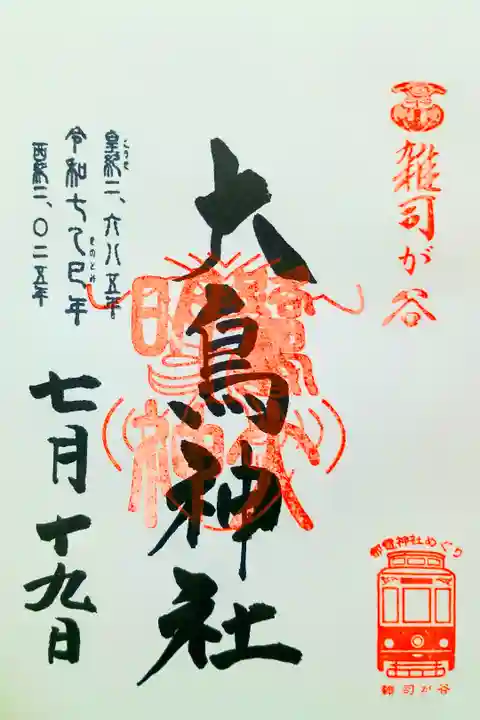 雑司が谷
大鳥神社
皇紀二、六八五年
こうき
令和七乙巳年
きのとみ
西暦二、〇二五年
七月十九日
都電神社めぐり
雑司が谷